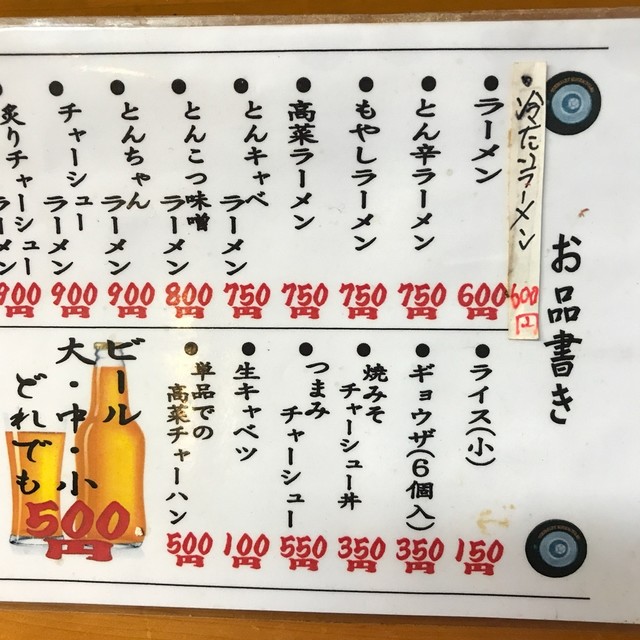 お品書き
冷たいラーメン
600円
ラーメン
600円
とん辛ラーメン
750円
もやしラーメン
750円
高菜ラーメン
750円
とんキャベ
ラーメン
750円
とんこつ味噌
ラーメン
800円
とんちゃん
ラーメン
900円
チャーシュー
ラーメン
900円
炙りチャーシュー
ラーメン
900円
ライス(小)
150円
ギョウザ(6個入)
350円
焼みそ
チャーシュー丼
350円
つまみ
チャーシュー
550円
生キャベツ
100円
単品での
高菜チャーハン
500円
ビール
大・中・小
どれでも
500円